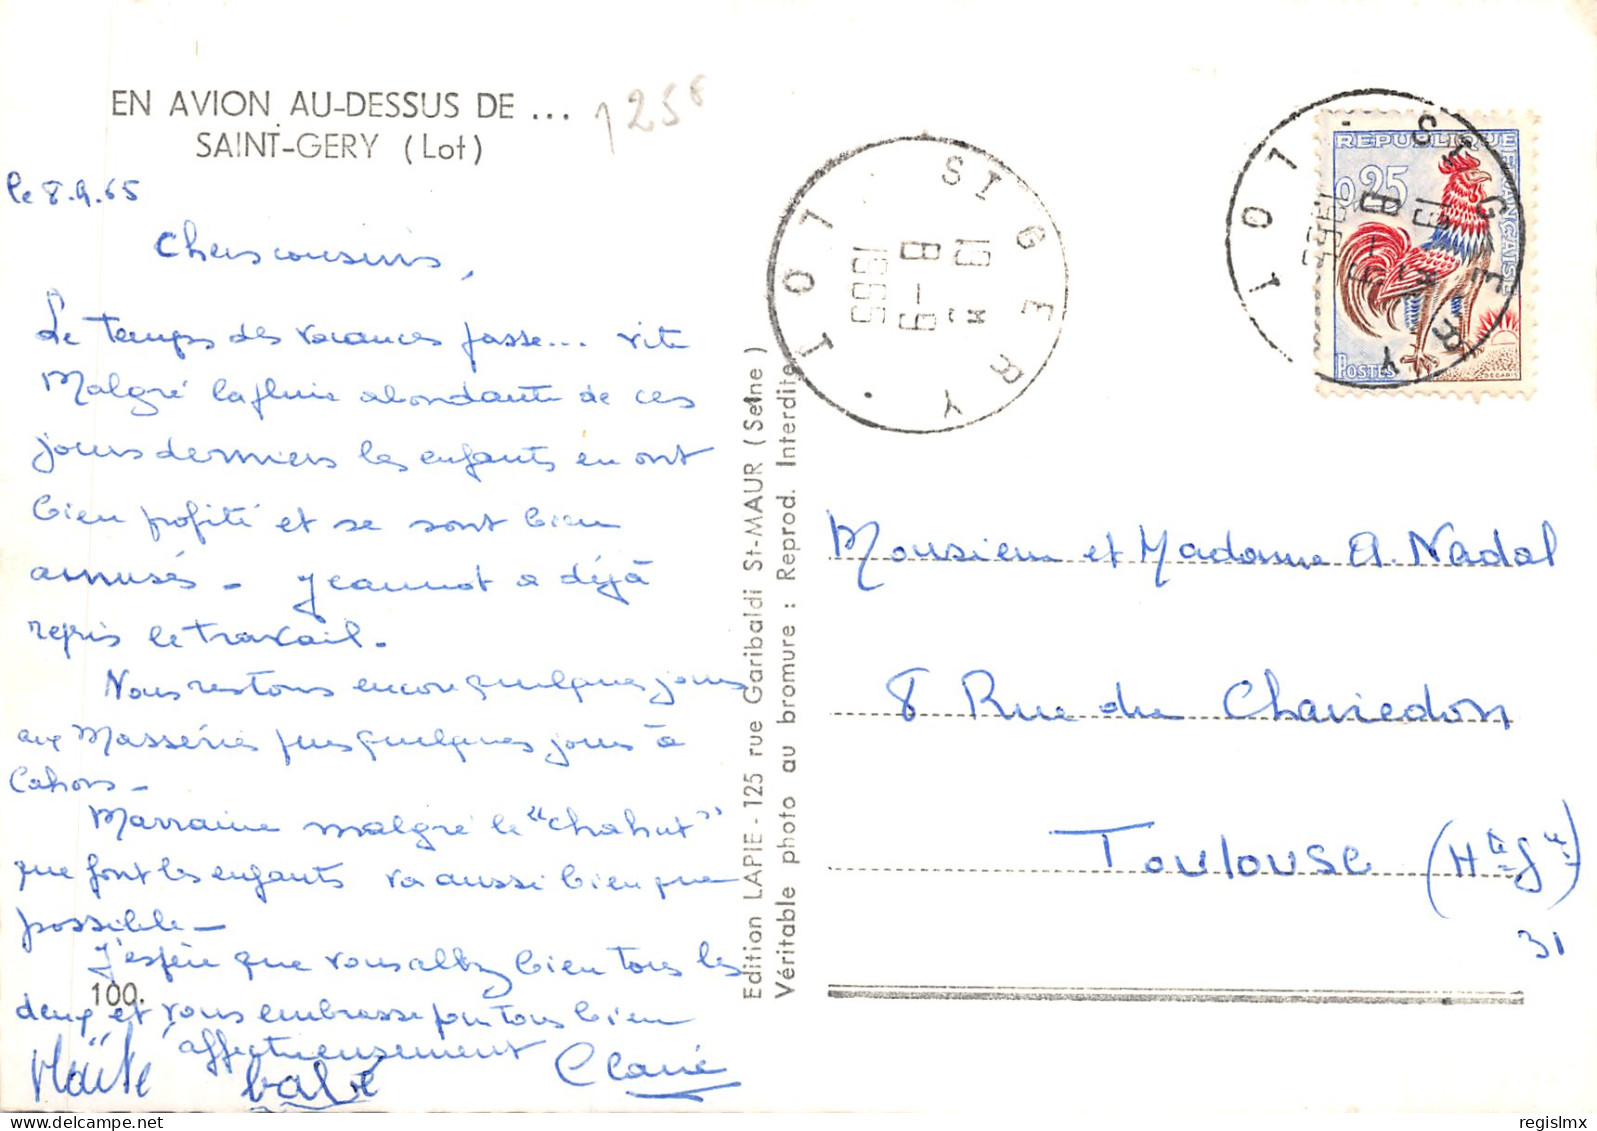 EN AVION AU-DESSUS DE ...
SAINT-GERY (Lot)
1258
le 8.9.65
Chers cousins,
Le temps des vacances passe... vite
Malgré la pluie abondante de ces
jours derniers les enfants en ont
bien profité et se sont bien
amusés - Jeannot a déjà
repris le travail.
Nous restons encore quelques jours
aux Masséries puis quelques jours à
Cahors -
Marraine malgré le "chahut"
que font les enfants va aussi bien que
possible -
J'espère que vous allez bien tous les
deux et vous embrasse pour tous bien
affectueusement
Claire
Maïté
100.
Edition LAPIE - 125 rue Garibaldi St-MAUR (Seine)
Véritable photo au bromure : Reprod. Interdite
ST GERY
LOT
19 H
8 - 9
1965
REPUBLIQUE FRANCAISE
0,25
POSTES
DECARIS
ST GERY
LOT
19 H
8 - 9
1965
Monsieur et Madame A. Nadal
8 Rue du Chairedon
Toulouse (Hte Gne)
31
regislmx